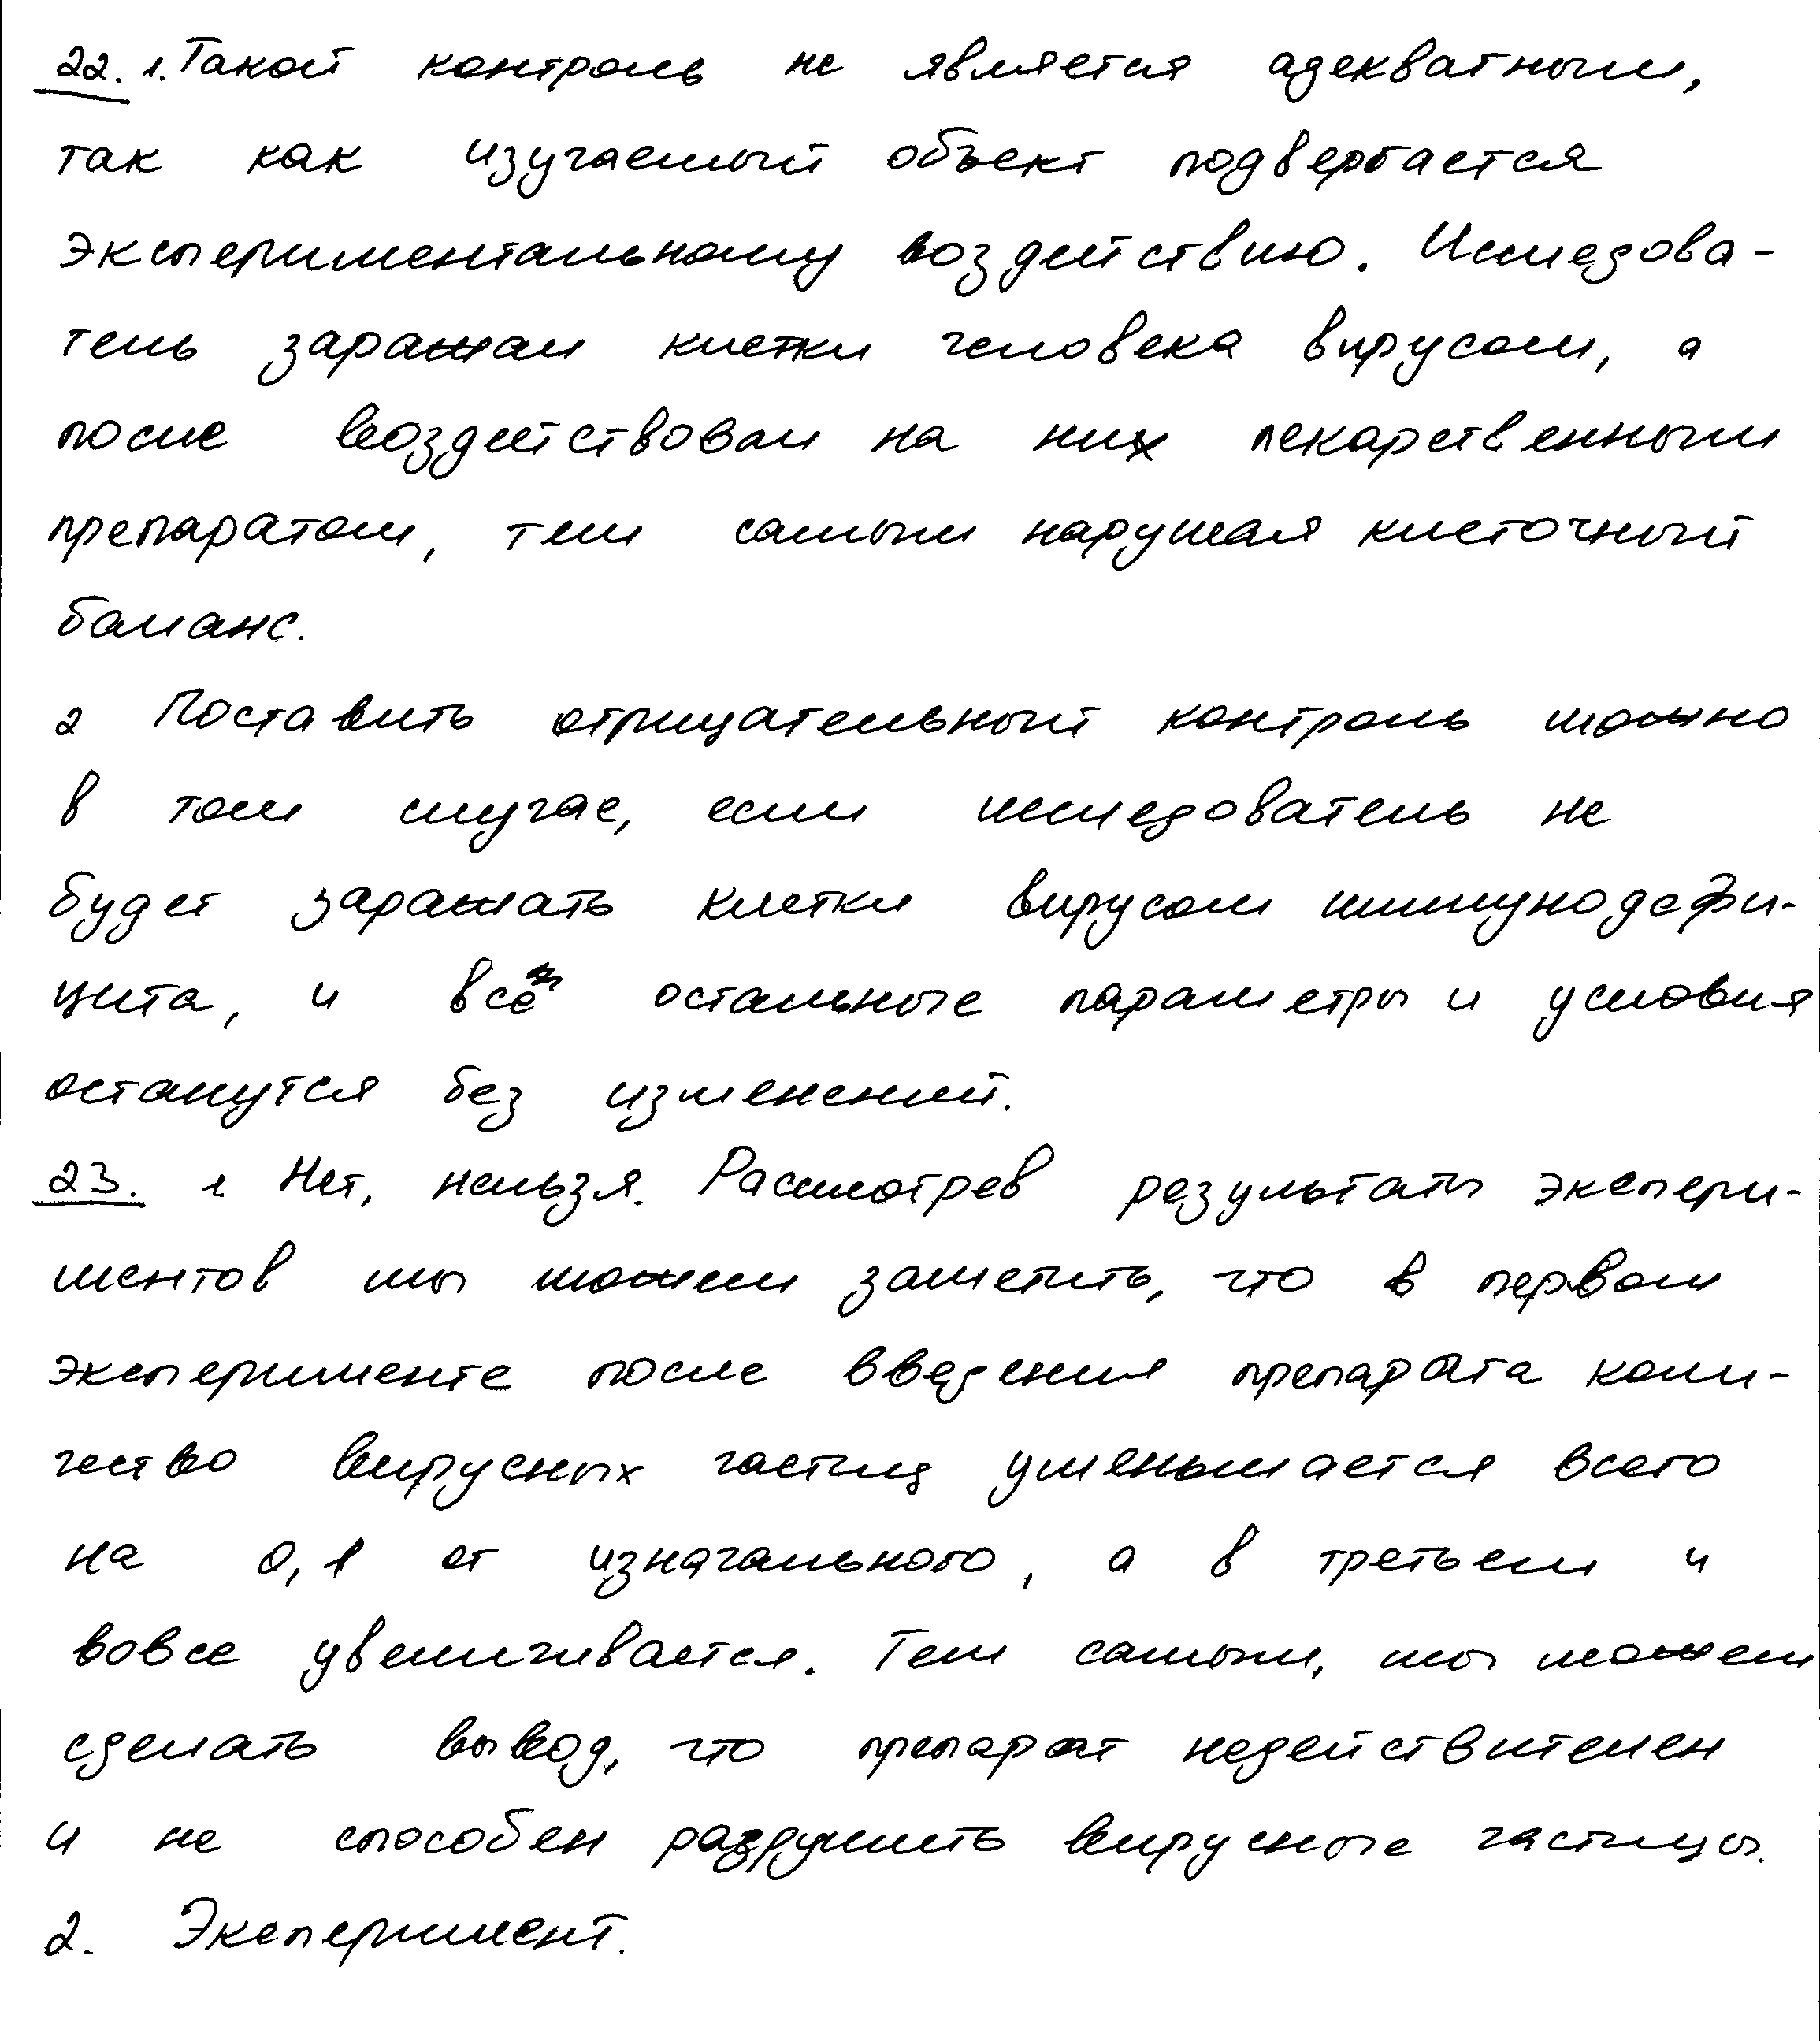 22. 1. Такой контроль не является адекватным,
так как изучаемый объект подвергается
экспериментальному воздействию. Исследова-
тель заражал клетки человека вирусом, а
после воздействовал на них лекарственным
препаратом, тем самым нарушая клеточный
баланс.
2 Поставить отрицательный контроль можно
в том случае, если исследователь не
будет заражать клетки вирусом иммунодефи-
цита, и всё остальные параметры и условия
останутся без изменений.
23. 1 Нет, нельзя. Рассмотрев результаты экспери-
ментов мы можем заметить, что в первом
эксперименте после введения препарата коли-
чество вирусных частиц уменьшается всего
на 0,1 от изначального, а в третьем и
вовсе увеличивается. Тем самым, мы можем
сделать вывод, что препарат недействителен
и не способен разрушить вирусные частицы.
2. Эксперимент.